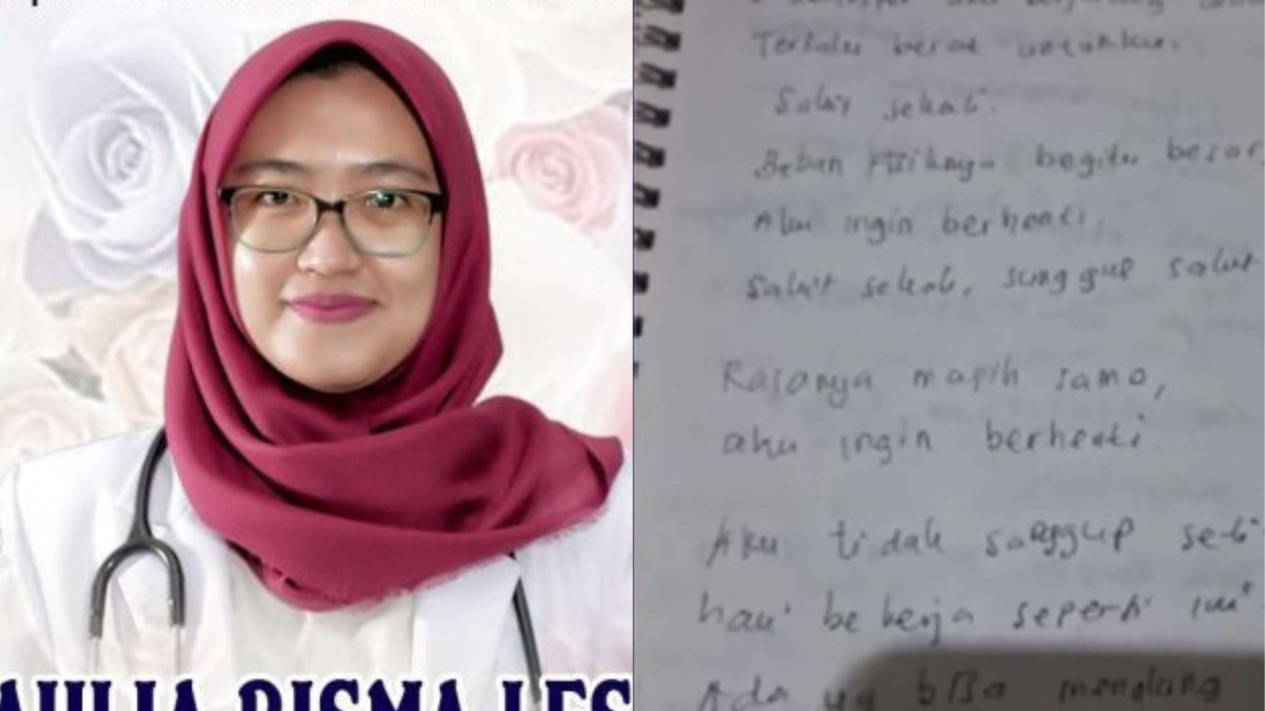 AULIA RISMA LES
Terlalu berat untukku.
Sakit sekali.
Beban fisiknya begitu besar,
Aku ingin berhenti.
Sakit sekali, sunggup sakit
Rasanya masih sama,
aku ingin berhenti.
Aku tidak sanggup seti
hari bekerja seperti ini
Ada yg bisa menolong